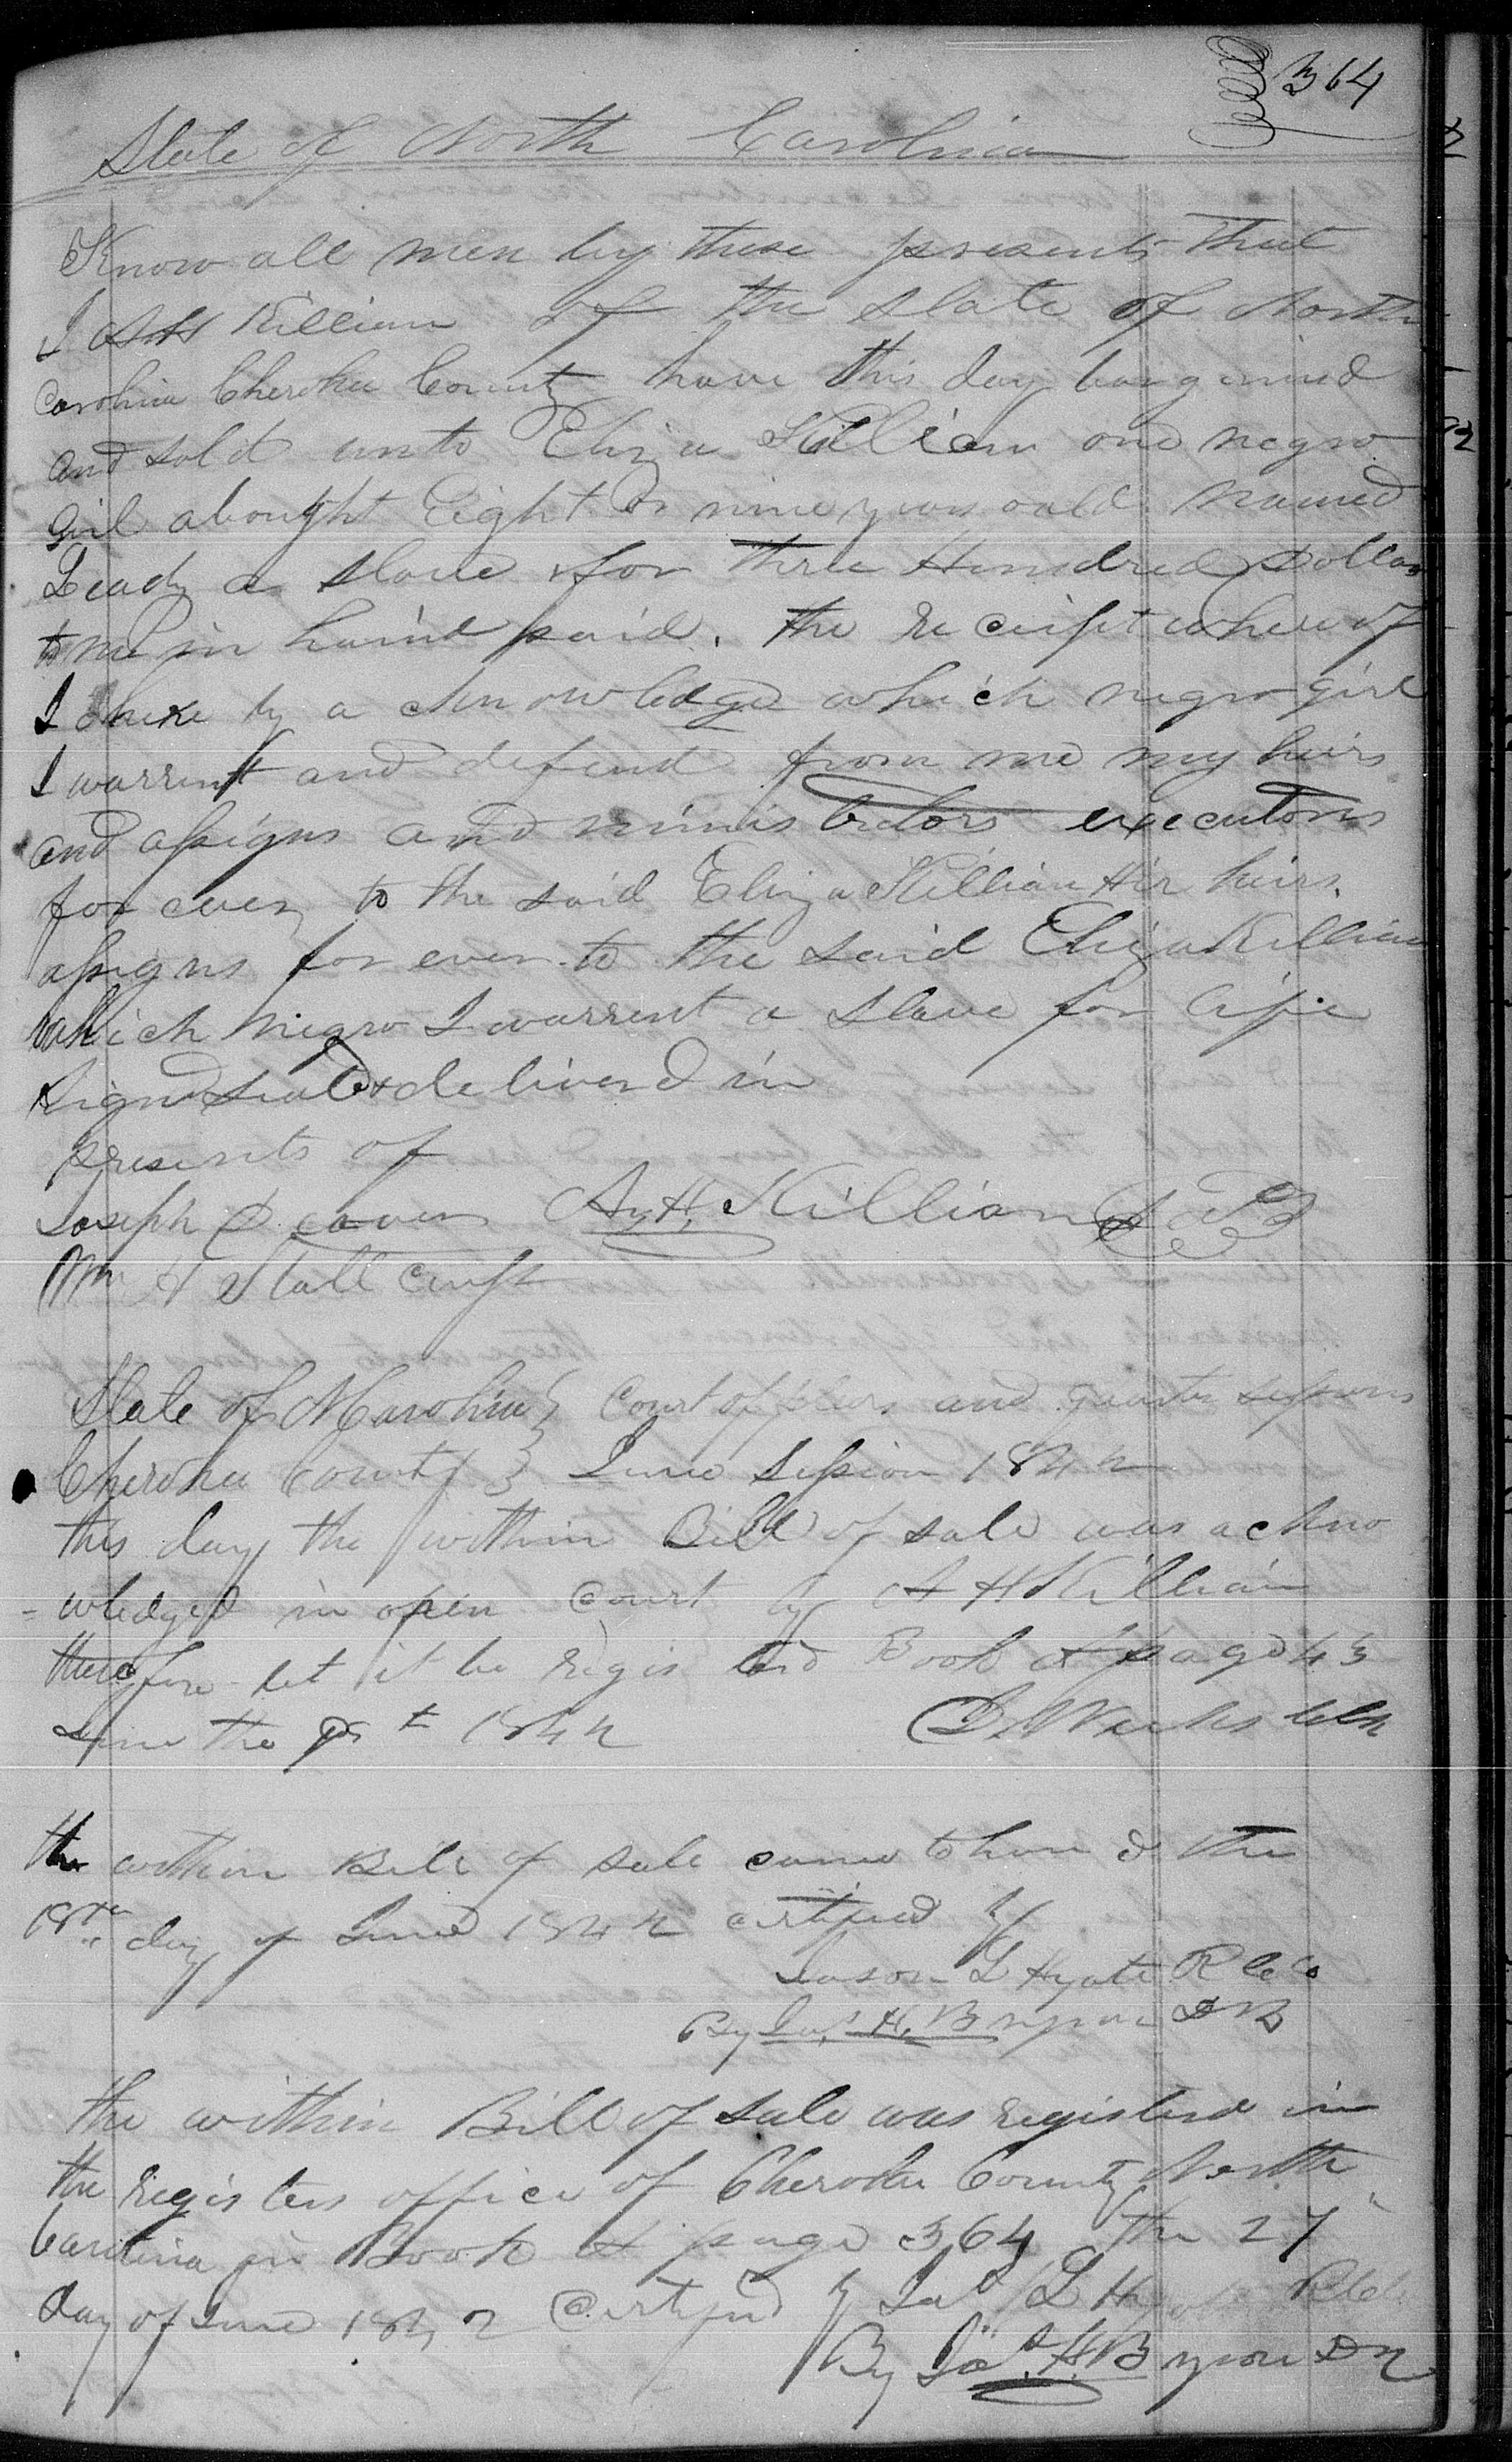 364
State of North Carolina
Know all men by these presents that
I A H Killian of the State of North
Carolina Cherokee County have this day bargained
and sold unto Eliza Killian one negro
Girl abought Eight or nine years oald named
a slave for three Hundred Dollars
to me in haind paid. the receipt where of
I here by a cknowledge which negro girl
I warrent and defend from me my heirs
and assigns and minis trators executors
for ever to the said Eliza Killian Hir heirs
assigns for ever to the said Eliza Killian
which Negro I warrent a Slave for life
Signd Seald & deliverd in
presents of
Joseph A. H. Killian
Wm H Stall cup
State of N Carolina } Court of pleas and quarter sessions
Cherokee County } June Session 1842
this day the within Bill of sale was ackno
- wledged in open Court by A H Killian
therefore let it be regis terd Book & page 43
June the 1842 Clk
the within Bill of sale came to han d the
18th day of June 1842 certified by
Jason L Hyatt R C Co
By Jas. H. Bryson D R
the within Bill of sale was registerd in
the registers office of Cherokee County North
Carolina in Book A page 364 the 27"
day of June 1842 Certifid by Jas L Hyatt
By Jas. H. Bryson D R